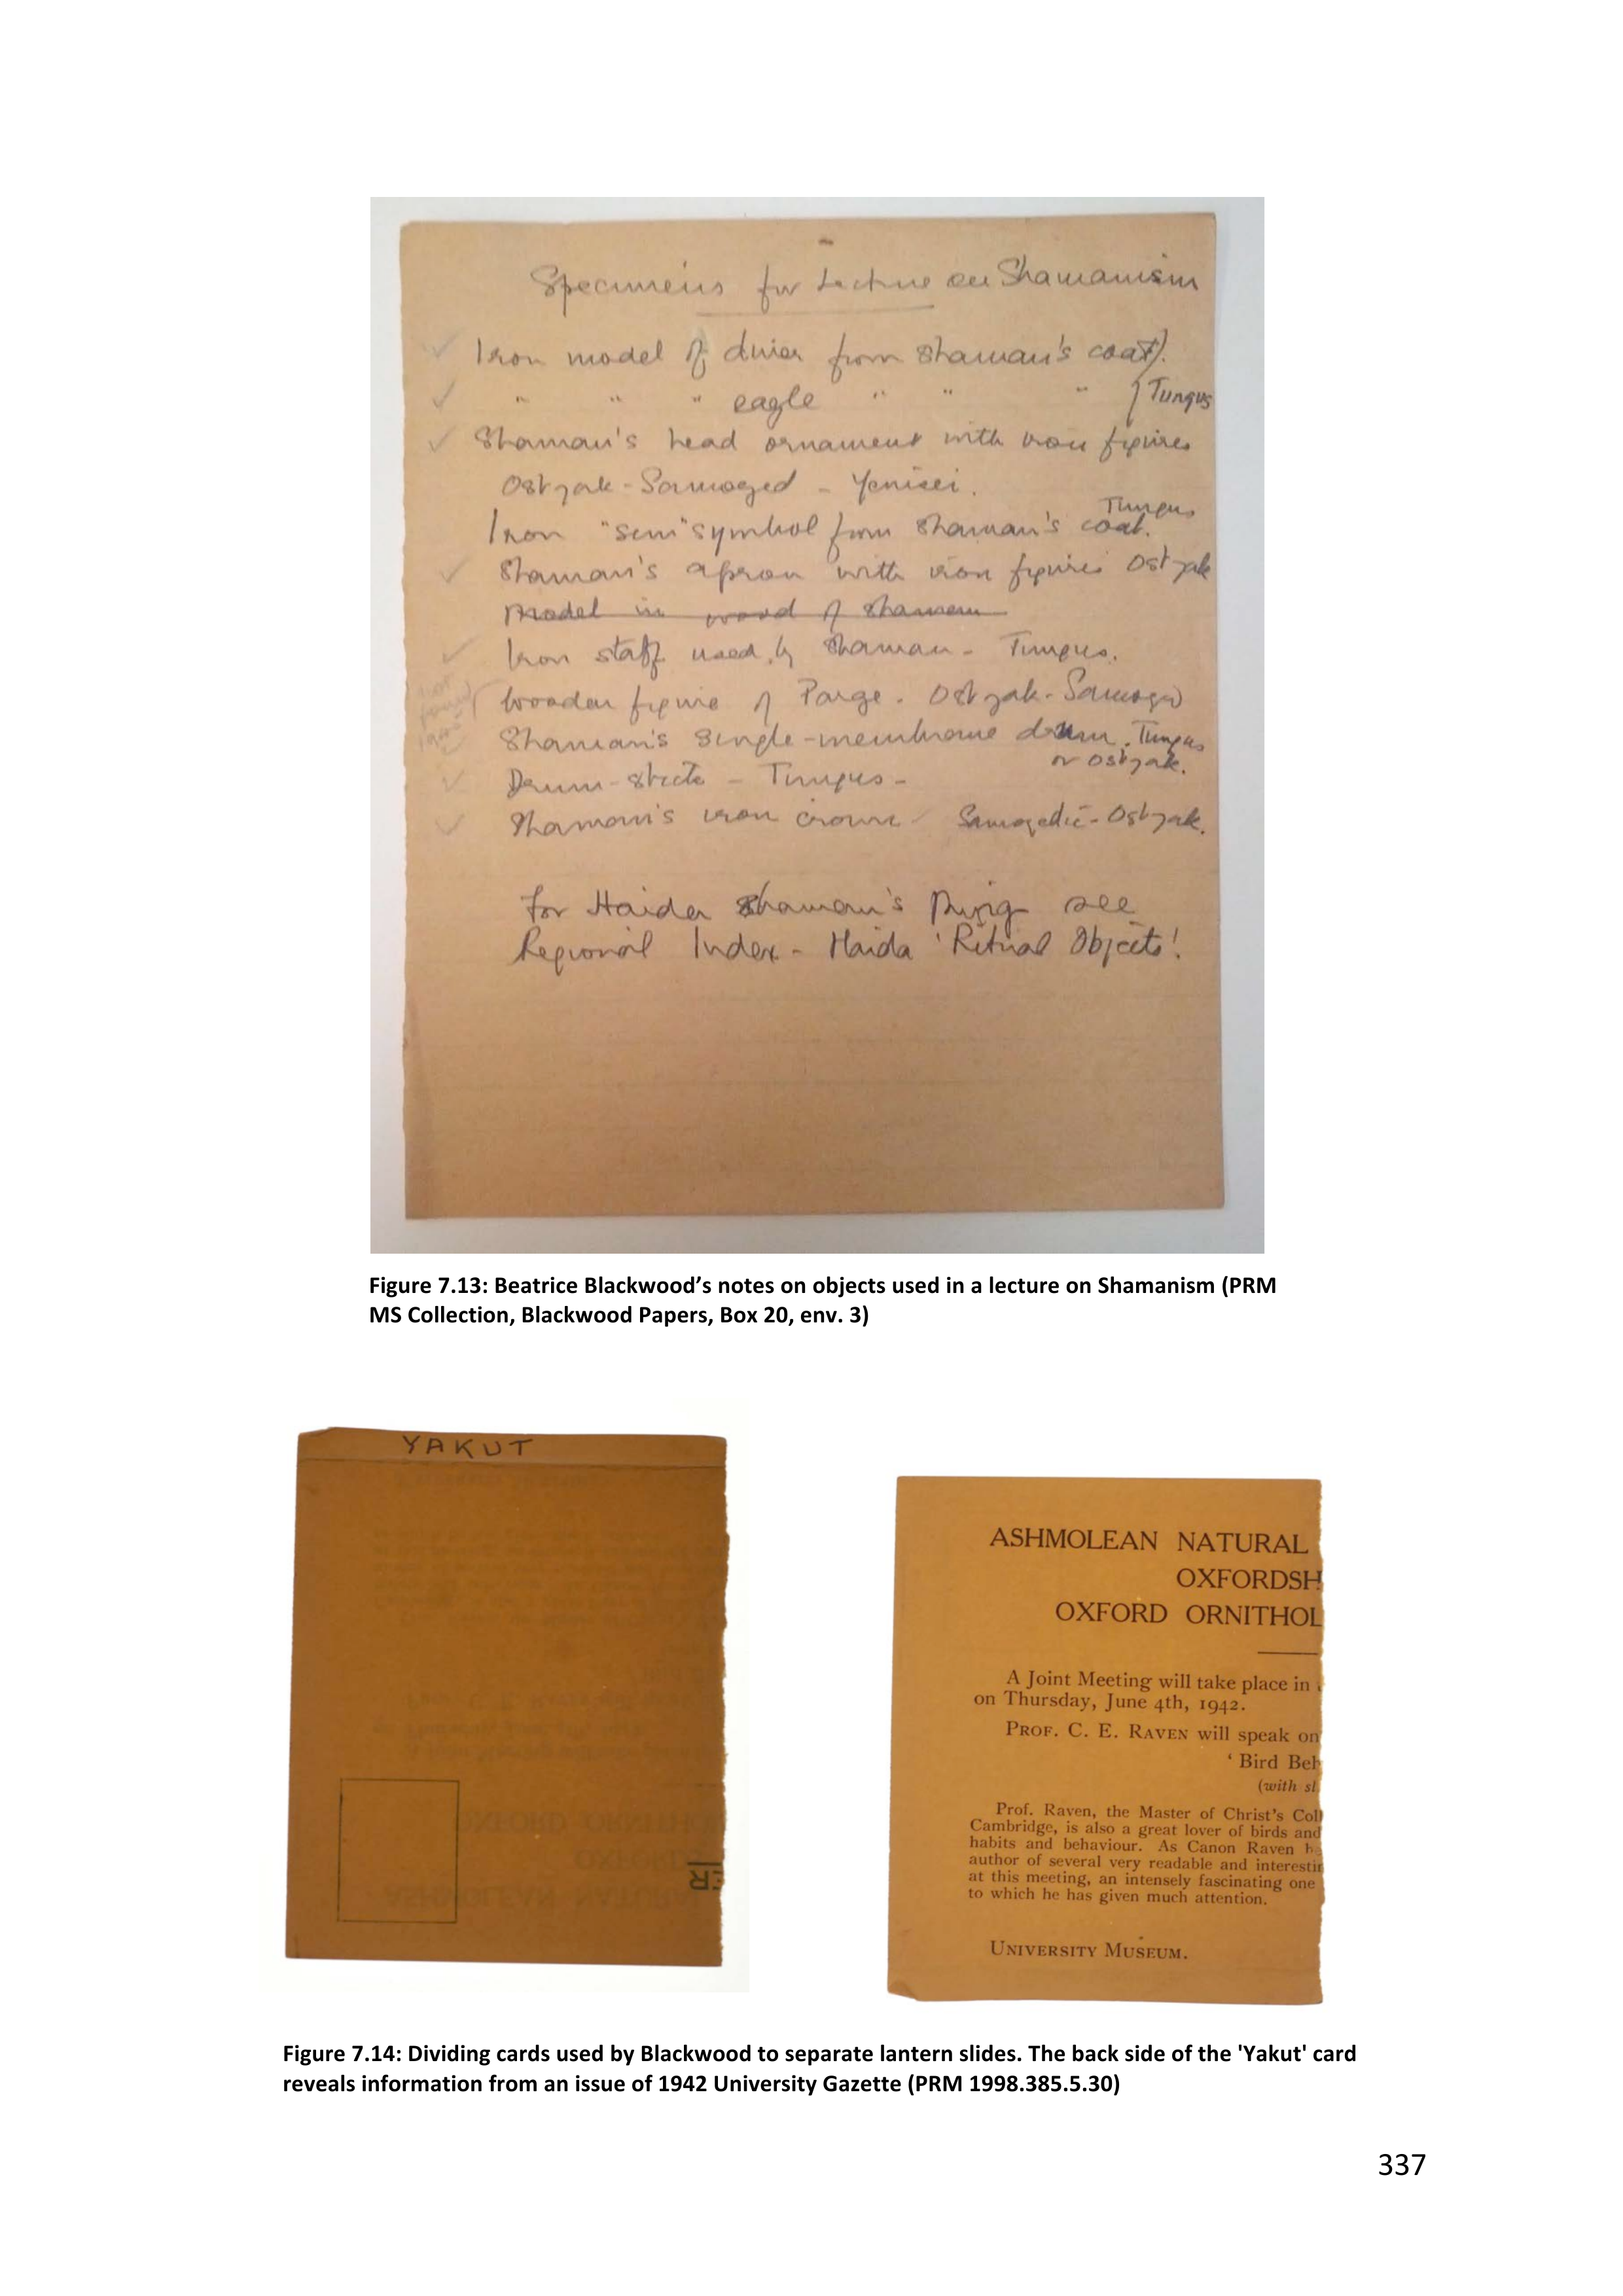 Specimens for Lecture on Shamanism
Iron model of diver from Shaman's coat).
" " " eagle " " " } Tungus
Shaman's head ornament with iron figures
Ostyak-Samoyed - Yenisei.
Iron "sun" symbol from Shaman's coat. Tungus
Shaman's apron with iron figures Ostyak
Model in wood of Shaman
Iron staff used by Shaman - Tungus.
Wooden figure of Parge. Ostyak-Samoyed
Shaman's Single-membrane drum. Tungus
or Ostyak.
Drum-stick - Tungus -
Shaman's iron crown Samoyedic-Ostyak.
For Haida Shaman's see
Regional Index - Haida 'Ritual Objects'
Figure 7.13: Beatrice Blackwood’s notes on objects used in a lecture on Shamanism (PRM
MS Collection, Blackwood Papers, Box 20, env. 3)
YAKUT
ER
OXFORD ORNITHOL
OXFORDS
ASHMOLEAN NATURAL
ASHMOLEAN NATURAL
OXFORDSH
OXFORD ORNITHOL
A Joint Meeting will take place in
on Thursday, June 4th, 1942.
PROF. C. E. RAVEN will speak on
‘ Bird Beh
(with sl
Prof. Raven, the Master of Christ's Coll
Cambridge, is also a great lover of birds and
habits and behaviour. As Canon Raven he
author of several very readable and interestin
at this meeting, an intensely fascinating one
to which he has given much attention.
UNIVERSITY MUSEUM.
Figure 7.14: Dividing cards used by Blackwood to separate lantern slides. The back side of the 'Yakut' card
reveals information from an issue of 1942 University Gazette (PRM 1998.385.5.30)
337